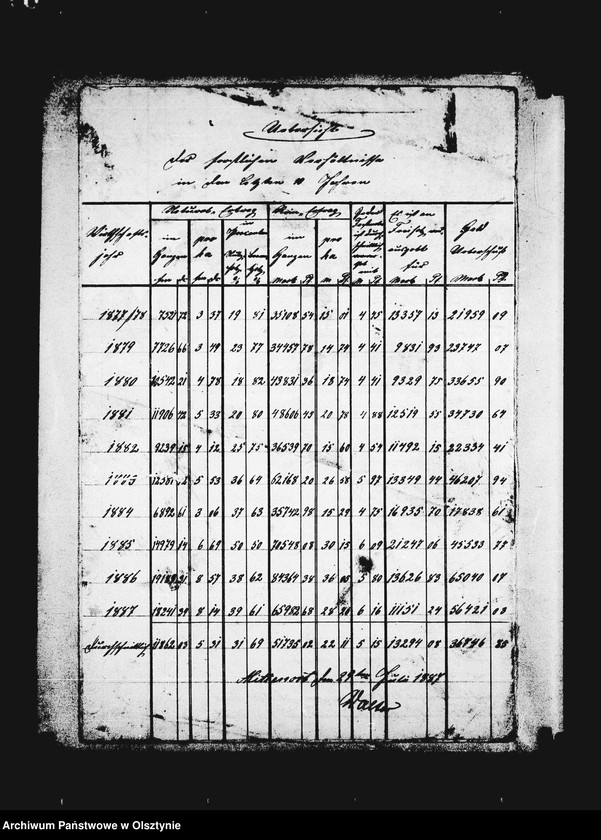 Uebersicht
der forstlichen Verhältnisse
in den letzten 10 Jahren
Wirthschafts- jahr | Natural-Ertrag im Ganzen fm dc | pro ha fm dc | in Procenten | Rein-Ertrag im Ganzen Mark Pf | pro ha M Pf | M Pf | Es ist an ausgabt für Mark Pf | Geld Ueberschuß Mark Pf
1877/78 7521 72 3 37 19 81 35108 54 15 01 4 75 13357 13 21959 09
1879 7726 66 3 49 23 77 34457 78 14 74 4 41 9831 93 23747 07
1880 10542 21 4 78 18 82 43831 36 18 74 4 41 9329 75 33655 90
1881 11906 72 5 33 20 80 48606 43 20 78 4 88 12519 55 34730 64
1882 9239 15 4 12 25 75 36539 70 15 60 4 54 11492 15 22334 41
1883 12381 5 53 36 64 62168 20 26 58 5 97 13349 44 46207 94
1884 6892 61 3 06 37 63 35742 98 15 29 4 75 16935 70 17838 61
1885 14979 14 6 69 50 50 70548 08 30 15 6 09 21247 06 45533 77
1886 19189 31 8 57 38 62 84364 38 36 05 5 80 13626 83 65040 07
1887 18241 39 8 14 39 61 65982 68 28 20 6 16 11151 24 56421 03
Durchschnittlich 11862 03 5 31 31 69 51735 02 22 11 5 15 13294 08 36746 85
den 29ten Juli 1887
Archiwum Państwowe w Olsztynie